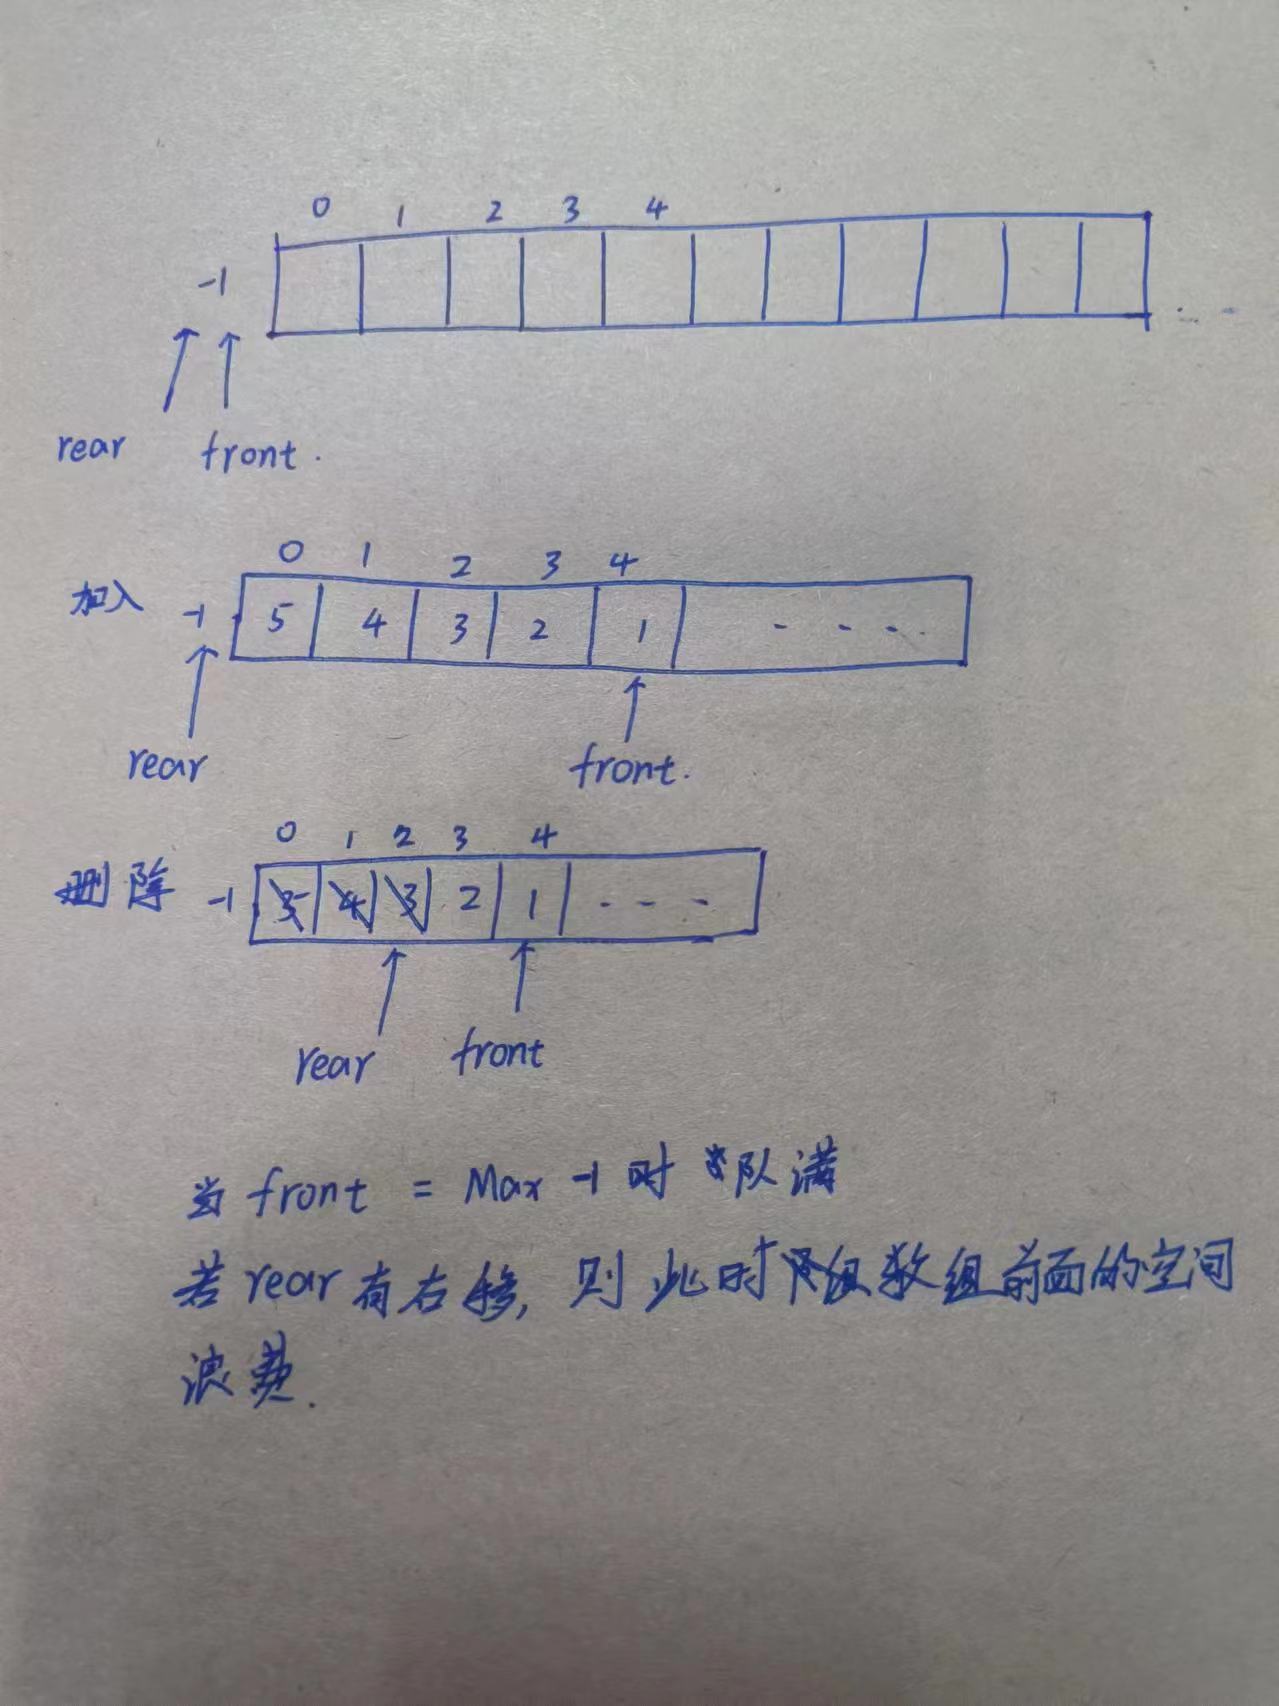 0 1 2 3 4
-1
rear front.
0 1 2 3 4
加入 -1 5 4 3 2 1 - - - .
rear front.
0 1 2 3 4
删除 -1 5 4 3 2 1 - - -
rear front
当 front = Max -1 时 队满
若 rear 有右移, 则 此时 数组前面的空间
浪费.